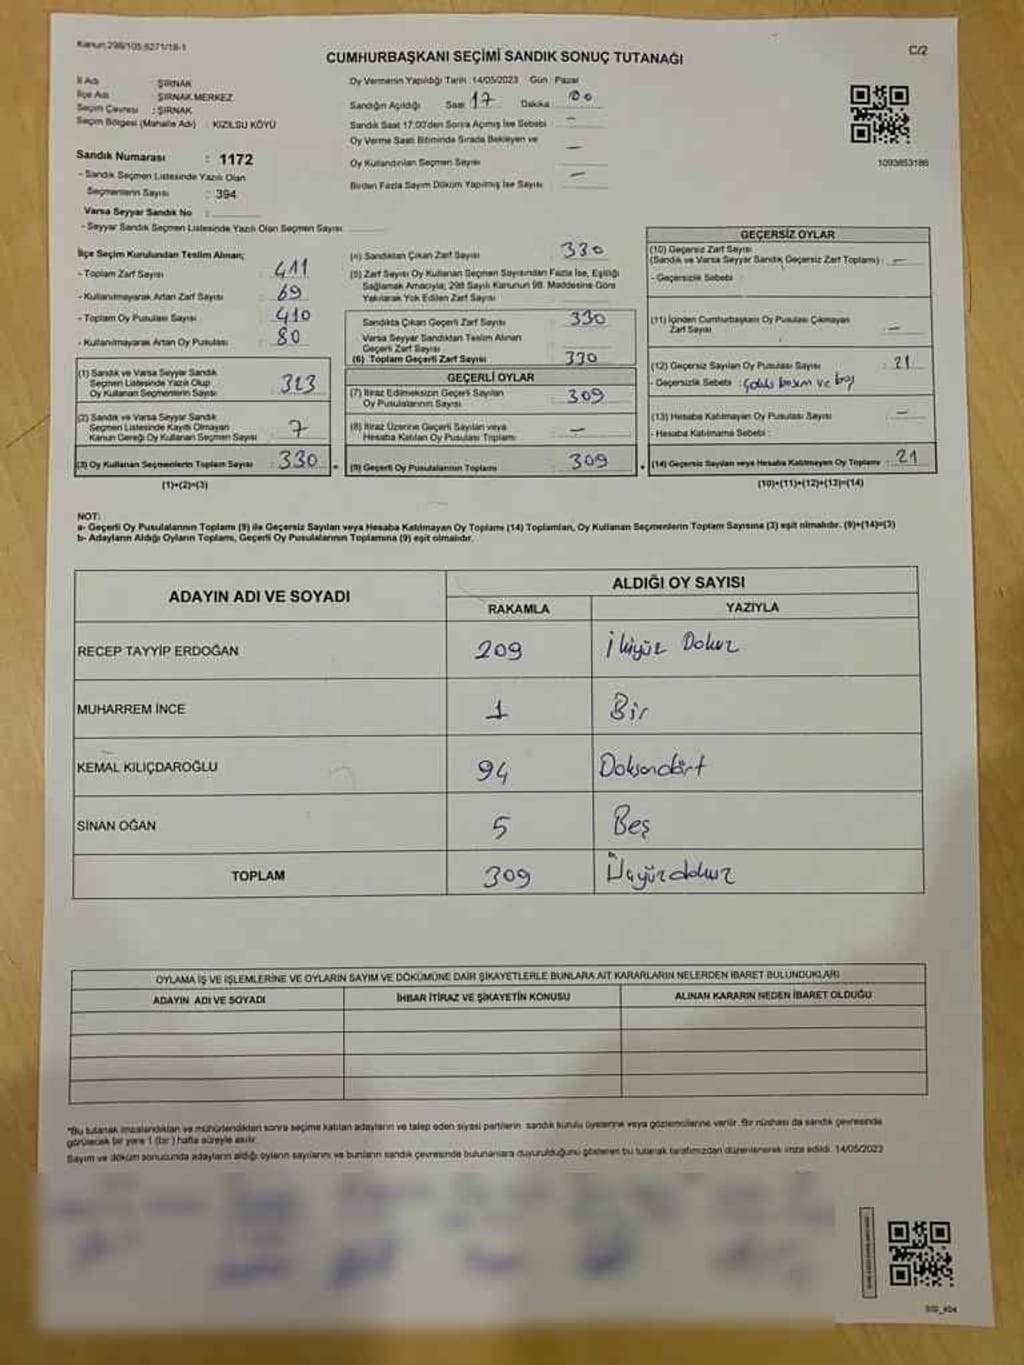 Kanun:298/105;6271/18-1
C/2
CUMHURBAŞKANI SEÇİMİ SANDIK SONUÇ TUTANAĞI
İl Adı : ŞIRNAK
İlçe Adı : ŞIRNAK MERKEZ
Seçim Çevresi : ŞIRNAK
Seçim Bölgesi (Mahalle Adı) : KIZILSU KÖYÜ
Sandık Numarası : 1172
- Sandık Seçmen Listesinde Yazılı Olan
Seçmenlerin Sayısı : 394
Varsa Seyyar Sandık No :
- Seyyar Sandık Seçmen Listesinde Yazılı Olan Seçmen Sayısı:
Oy Vermenin Yapıldığı Tarih :14/05/2023 Gün : Pazar
Sandığın Açıldığı Saat 17 Dakika 00
Sandık Saat 17:00'den Sonra Açımış İse Sebebi : –
Oy Verme Saati Bitiminde Sırada Bekleyen ve
Oy Kullandırılan Seçmen Sayısı –
Birden Fazla Sayım Döküm Yapılmış İse Sayısı –
1093853186
İlçe Seçim Kurulundan Teslim Alınan;
- Toplam Zarf Sayısı : 411
- Kullanılmayarak Artan Zarf Sayısı : 69
- Toplam Oy Pusulası Sayısı : 410
- Kullanılmayarak Artan Oy Pusulası : 80
(1) Sandık ve Varsa Seyyar Sandık
Seçmen Listesinde Yazılı Olup
Oy Kullanan Seçmenlerin Sayısı : 323
(2) Sandık ve Varsa Seyyar Sandık
Seçmen Listesinde Kayıtlı Olmayan
Kanun Gereği Oy Kullanan Seçmen Sayısı : 7
(3) Oy Kullanan Seçmenlerin Toplam Sayısı : 330
(1)+(2)=(3)
(4) Sandıktan Çıkan Zarf Sayısı : 330
(5) Zarf Sayısı Oy Kullanan Seçmen Sayısından Fazla İse, Eşitliği
Sağlamak Amacıyla; 298 Sayılı Kanunun 98. Maddesine Göre
Yakılarak Yok Edilen Zarf Sayısı
Sandıkta Çıkan Geçerli Zarf Sayısı : 330
Varsa Seyyar Sandıktan Teslim Alınan
Geçerli Zarf Sayısı
(6) Toplam Geçerli Zarf Sayısı : 330
GEÇERLİ OYLAR
(7) İtiraz Edilmeksizin Geçerli Sayılan
Oy Pusulalarının Sayısı : 309
(8) İtiraz Üzerine Geçerli Sayılan veya
Hesaba Katılan Oy Pusulası Toplamı : –
(9) Geçerli Oy Pusulalarının Toplamı : 309
GEÇERSİZ OYLAR
(10) Geçersiz Zarf Sayısı
(Sandık ve Varsa Seyyar Sandık Geçersiz Zarf Toplamı) : –
- Geçersizlik Sebebi :
(11) İçinden Cumhurbaşkanı Oy Pusulası Çıkmayan
Zarf Sayısı : –
(12) Geçersiz Sayılan Oy Pusulası Sayısı : 21
- Geçersizlik Sebebi : Çoklu basım ve boş
(13) Hesaba Katılmayan Oy Pusulası Sayısı : –
- Hesaba Katılmama Sebebi :
(14) Geçersiz Sayılan veya Hesaba Katılmayan Oy Toplamı : 21
(10)+(11)+(12)+(13)=(14)
NOT:
a- Geçerli Oy Pusulalarının Toplamı (9) ile Geçersiz Sayılan veya Hesaba Katılmayan Oy Toplamı (14) Toplamları, Oy Kullanan Seçmenlerin Toplam Sayısına (3) eşit olmalıdır. (9)+(14)=(3)
b- Adayların Aldığı Oyların Toplamı, Geçerli Oy Pusulalarının Toplamına (9) eşit olmalıdır.
ADAYIN ADI VE SOYADI
ALDIĞI OY SAYISI
RAKAMLA YAZIYLA
RECEP TAYYİP ERDOĞAN 209 İkiyüz Dokuz
MUHARREM İNCE 1 Bir
KEMAL KILIÇDAROĞLU 94 Doksandört
SİNAN OĞAN 5 Beş
TOPLAM 309 Üçyüzdokuz
OYLAMA İŞ VE İŞLEMLERİNE VE OYLARIN SAYIM VE DÖKÜMÜNE DAİR ŞİKAYETLERLE BUNLARA AİT KARARLARIN NELERDEN İBARET BULUNDUKLARI
ADAYIN ADI VE SOYADI İHBAR İTİRAZ VE ŞİKAYETİN KONUSU ALINAN KARARIN NEDEN İBARET OLDUĞU
*Bu tutanak imzalandıktan ve mühürlendikten sonra seçime katılan adayların ve talep eden siyasi partilerin sandık kurulu üyelerine veya gözlemcilerine verilir. Bir nüshası da sandık çevresinde
görülecek bir yere 1 (bir ) hafta süreyle asılır.
Sayım ve döküm sonucunda adayların aldığı oyların sayılarını ve bunların sandık çevresinde bulunanlara duyurulduğunu gösteren bu tutanak tarafımızdan düzenlenerek imza edildi. 14/05/2023